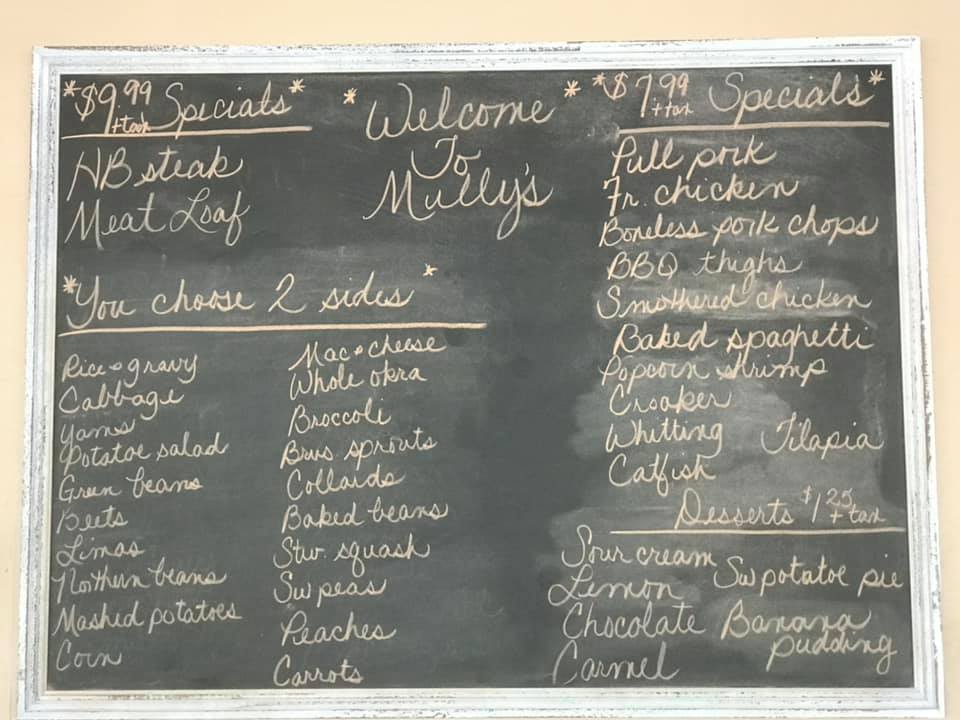 *$9.99 +tax Specials*
HB steak
Meat Loaf
* Welcome *
To
Mully's
*You choose 2 sides*
Rice + gravy
Cabbage
Yams
Potatoe salad
Green beans
Beets
Limas
Northern beans
Mashed potatoes
Corn
Mac + cheese
Whole okra
Broccoli
Brus. sprouts
Collards
Baked beans
Stw. squash
Sw peas
Peaches
Carrots
*$7.99 +tax Specials*
Pull pork
Fr. chicken
Boneless pork chops
BBQ thighs
Smothered chicken
Baked spaghetti
Popcorn shrimp
Croaker
Whitting Tilapia
Catfish
Desserts $1.25 + tax
Sour cream
Lemon
Chocolate
Carmel
Sw potatoe pie
Banana
pudding